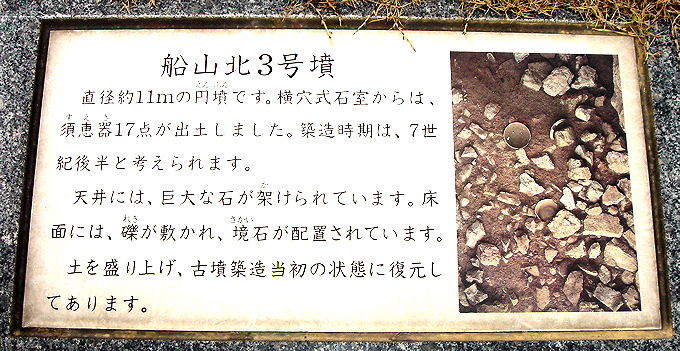 船山北3号墳
直径約11mの円墳です。横穴式石室からは、
須恵器17点が出土しました。築造時期は、7世
紀後半と考えられます。
天井には、巨大な石が架けられています。床
面には、礫が敷かれ、境石が配置されています。
土を盛り上げ、古墳築造当初の状態に復元し
てあります。